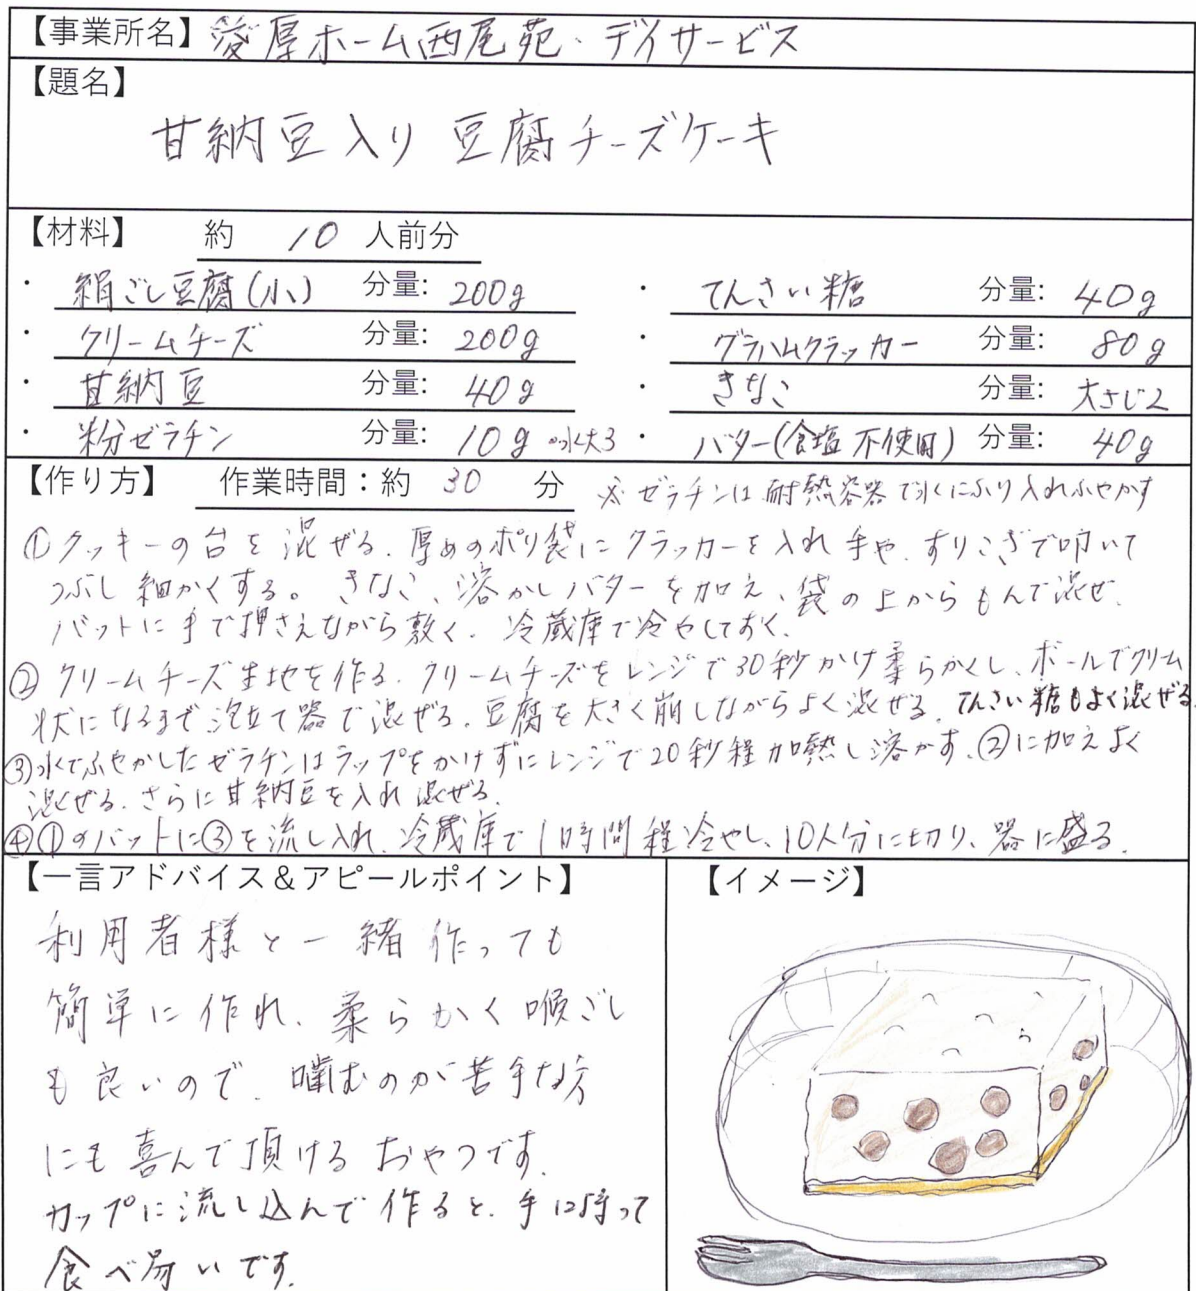 【事業所名】愛厚ホーム西尾苑・デイサービス
【題名】
甘納豆入り 豆腐チーズケーキ
【材料】 約 10 人前分
・ 絹ごし豆腐(小) 分量: 200g ・ てんさい糖 分量: 40g
・ クリームチーズ 分量: 200g ・ グラハムクラッカー 分量: 80g
・ 甘納豆 分量: 40g ・ きなこ 分量: 大さじ2
・ 粉ゼラチン 分量: 10g ※水大3 ・ バター(食塩不使用) 分量: 40g
【作り方】 作業時間:約 30 分 ※ゼラチンは耐熱容器で水にふり入れふやかす
①クッキーの台を混ぜる。厚めのポリ袋にクラッカーを入れ手や、すりこぎで叩いて
つぶし細かくする。きなこ、溶かしバターを加え、袋の上からもんで混ぜ、
バットに手で押さえながら敷く。冷蔵庫で冷やしておく。
②クリームチーズ生地を作る。クリームチーズをレンジで30秒かけ柔らかくし、ボールでクリーム
状になるまで泡立て器で混ぜる。豆腐を大きく崩しながらよく混ぜる。てんさい糖もよく混ぜる。
③水でふやかしたゼラチンはラップをかけずにレンジで20秒程加熱し溶かす。②に加えよく
混ぜる。さらに甘納豆を入れ混ぜる。
④①のバットに③を流し入れ、冷蔵庫で1時間程冷やし、10人分に切り、器に盛る。
【一言アドバイス&アピールポイント】
利用者様と一緒作っても
簡単に作れ、柔らかく喉ごし
も良いので、噛むのが苦手な方
にも喜んで頂けるおやつです。
カップに流し込んで作ると、手に持って
食べ易いです。
【イメージ】